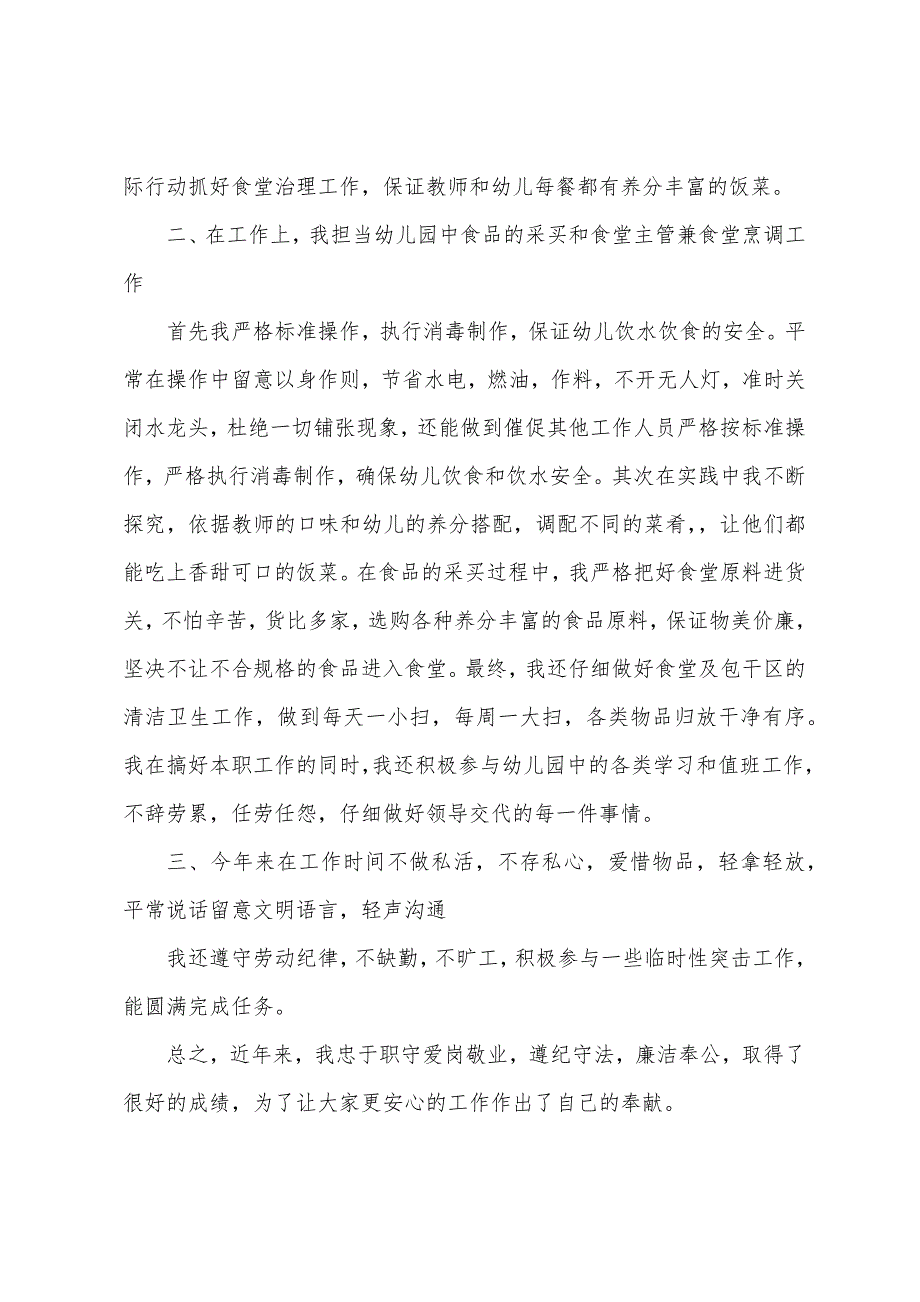 际行动抓好食堂治理工作，保证教师和幼儿每餐都有养分丰富的饭菜。
二、在工作上，我担当幼儿园中食品的采买和食堂主管兼食堂烹调工
作
首先我严格标准操作，执行消毒制作，保证幼儿饮水饮食的安全。平
常在操作中留意以身作则，节省水电，燃油，作料，不开无人灯，准时关
闭水龙头，杜绝一切铺张现象，还能做到催促其他工作人员严格按标准操
作，严格执行消毒制作，确保幼儿饮食和饮水安全。其次在实践中我不断
探究，依据教师的口味和幼儿的养分搭配，调配不同的菜肴，，让他们都
能吃上香甜可口的饭菜。在食品的采买过程中，我严格把好食堂原料进货
关，不怕辛苦，货比多家，选购各种养分丰富的食品原料，保证物美价廉，
坚决不让不合规格的食品进入食堂。最终，我还仔细做好食堂及包干区的
清洁卫生工作，做到每天一小扫，每周一大扫，各类物品归放干净有序。
我在搞好本职工作的同时，我还积极参与幼儿园中的各类学习和值班工作，
不辞劳累，任劳任怨，仔细做好领导交代的每一件事情。
三、今年来在工作时间不做私活，不存私心，爱惜物品，轻拿轻放，
平常说话留意文明语言，轻声沟通
我还遵守劳动纪律，不缺勤，不旷工，积极参与一些临时性突击工作，
能圆满完成任务。
总之，近年来，我忠于职守爱岗敬业，遵纪守法，廉洁奉公，取得了
很好的成绩，为了让大家更安心的工作作出了自己的奉献。